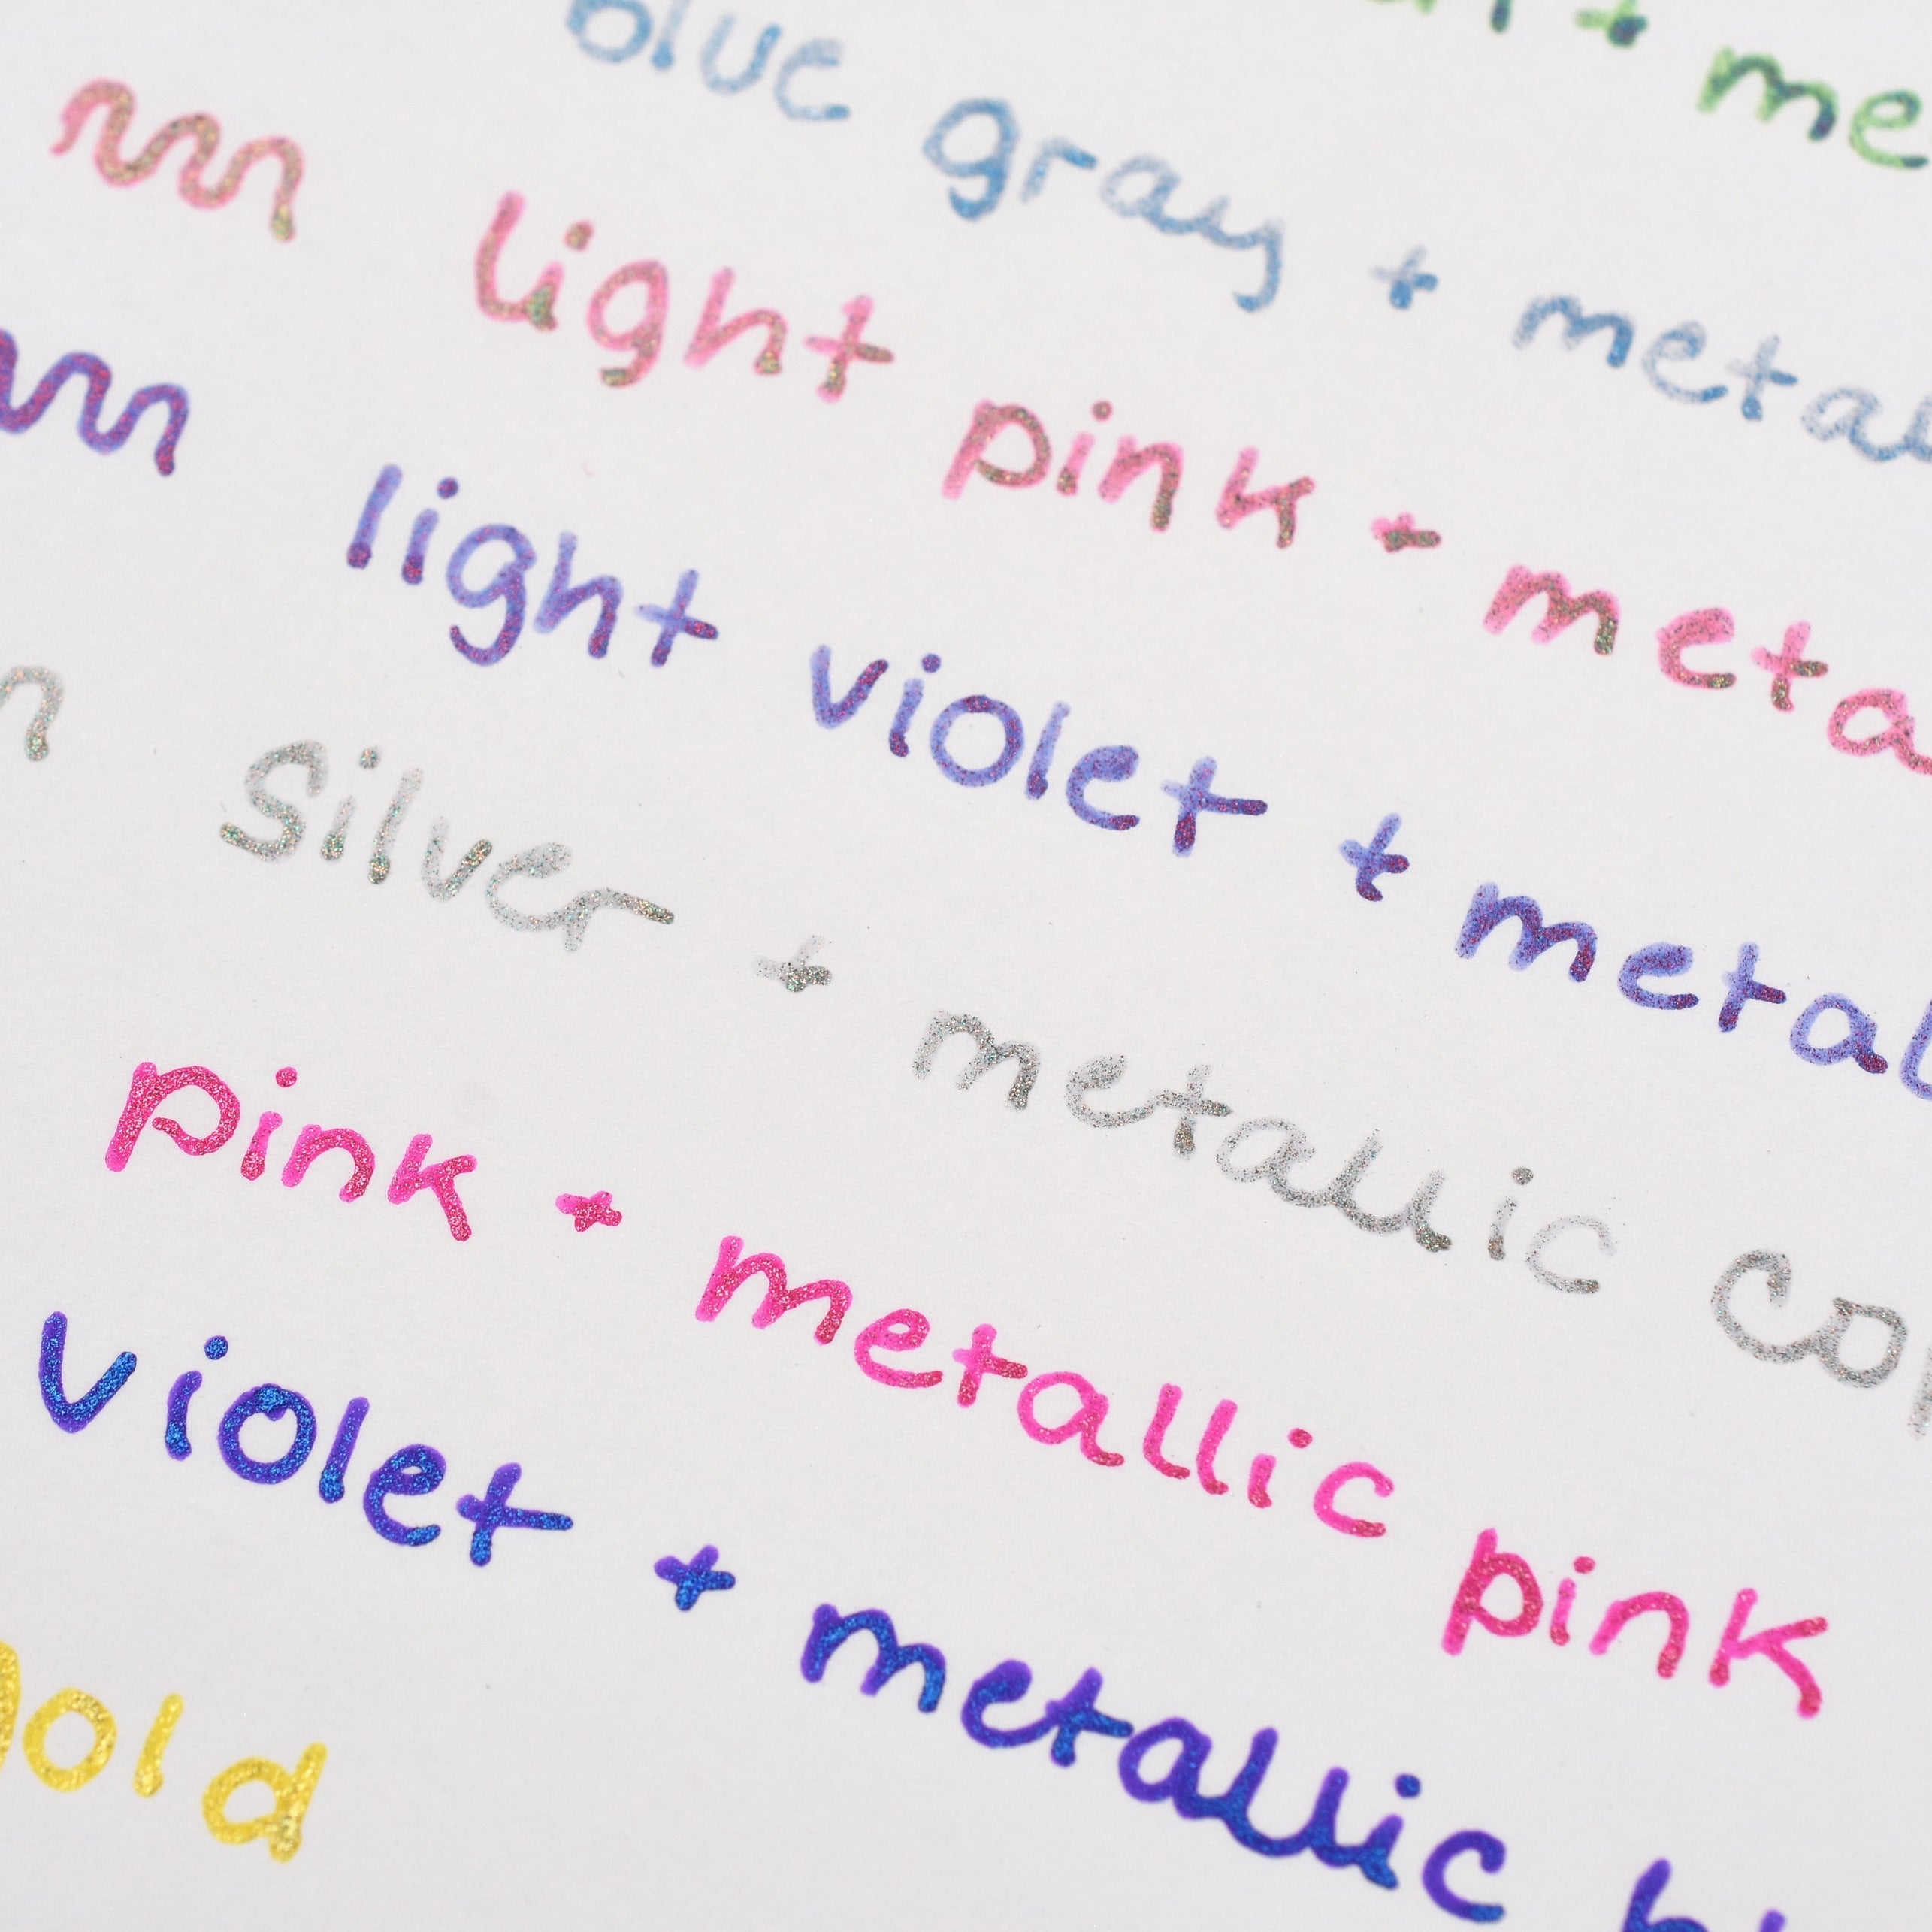 blue gray + metal
light pink + meta
light violet + metal
silver + metallic cop
pink + metallic pink
violet + metallic bl
gold